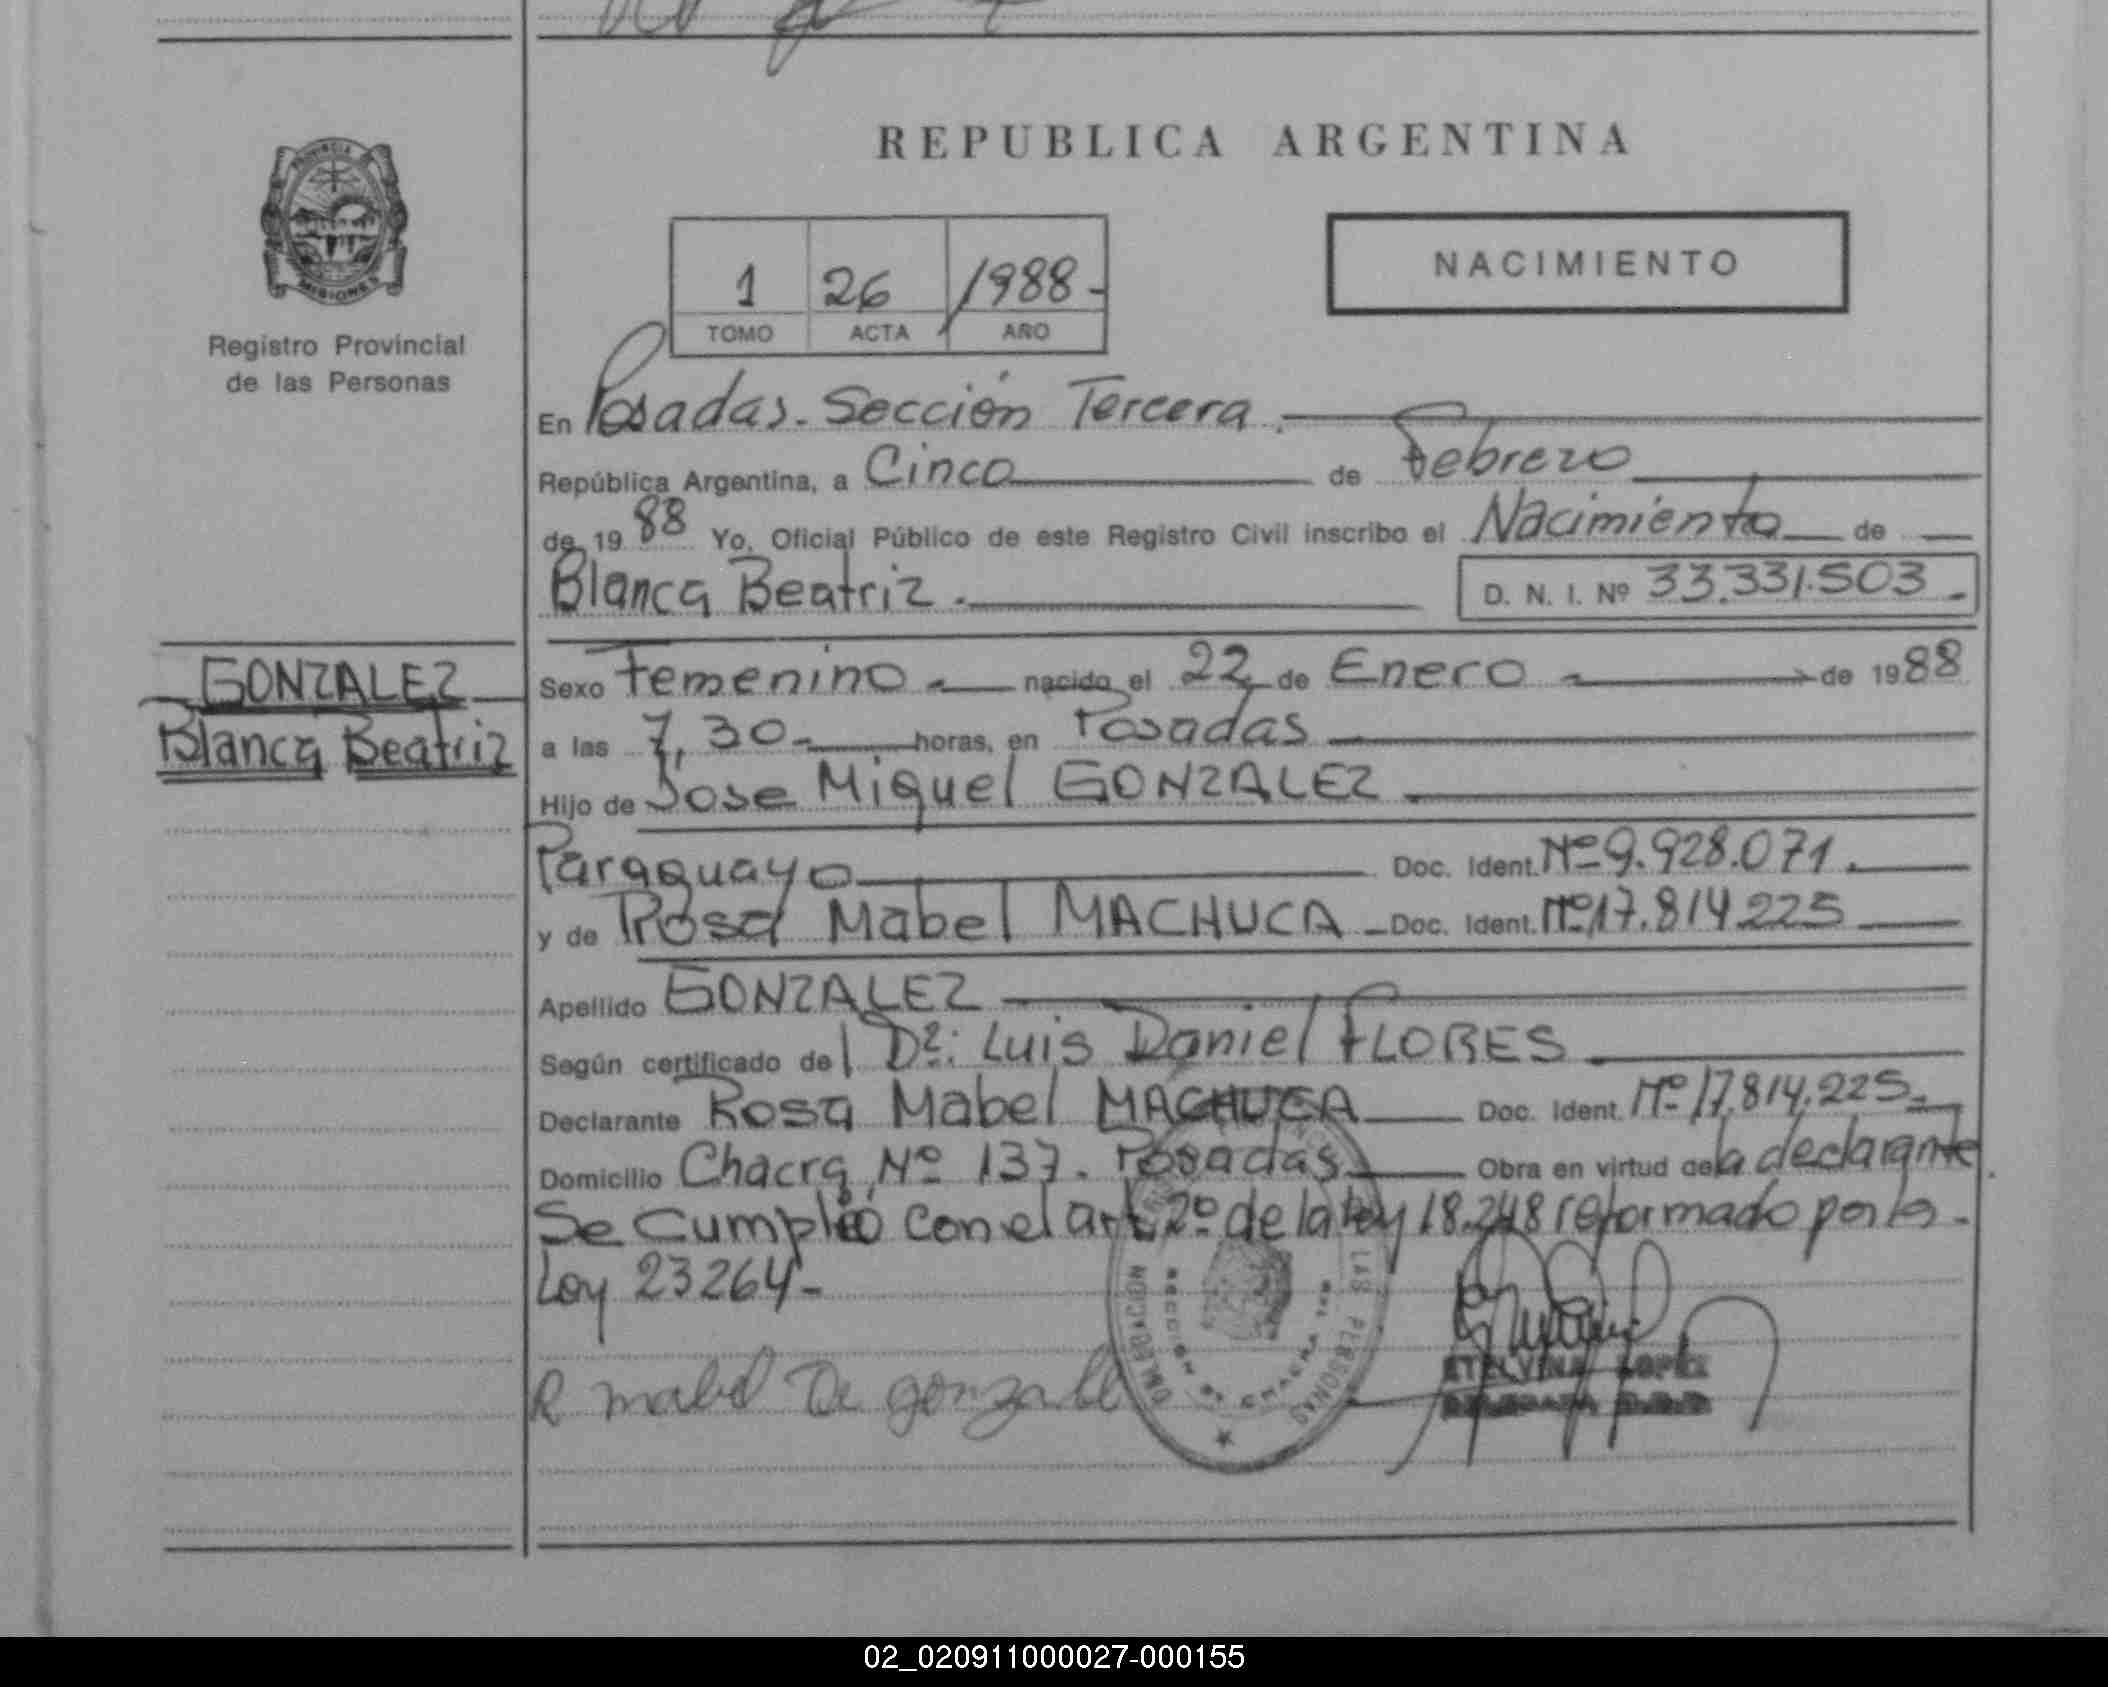 REPUBLICA ARGENTINA
PROVINCIA DE
MISIONES
Registro Provincial
de las Personas
1 26 1988-
TOMO ACTA AÑO
NACIMIENTO
En Posadas. Sección Tercera.
República Argentina, a Cinco de Febrero
de 19 88 Yo, Oficial Público de este Registro Civil inscribo el Nacimiento de
Blanca Beatriz. D. N. I. Nº 33.331.503-
GONZALEZ
Blanca Beatriz
Sexo Femenino nacido el 22 de Enero de 1988
a las 7,30- horas, en Posadas
Hijo de Jose Miguel GONZALEZ
Paraguayo Doc. Ident. Nº 9.928.071.
y de Rosa Mabel MACHUCA - Doc. Ident. Nº 17.814.225
Apellido GONZALEZ
Según certificado del Dr: Luis Daniel FLORES
Declarante Rosa Mabel MACHUCA Doc. Ident. Nº 17.814.225-
Domicilio Chacra Nº 137. Posadas Obra en virtud de la declarante.
Se Cumplió con el art. 2º de la ley 18.248 reformado por la-
Ley 23264-
R mabel De gonzale
LAS PERSONAS
SECCION 3ª CHACRA
ETELVINA LOPEZ
02_020911000027-000155